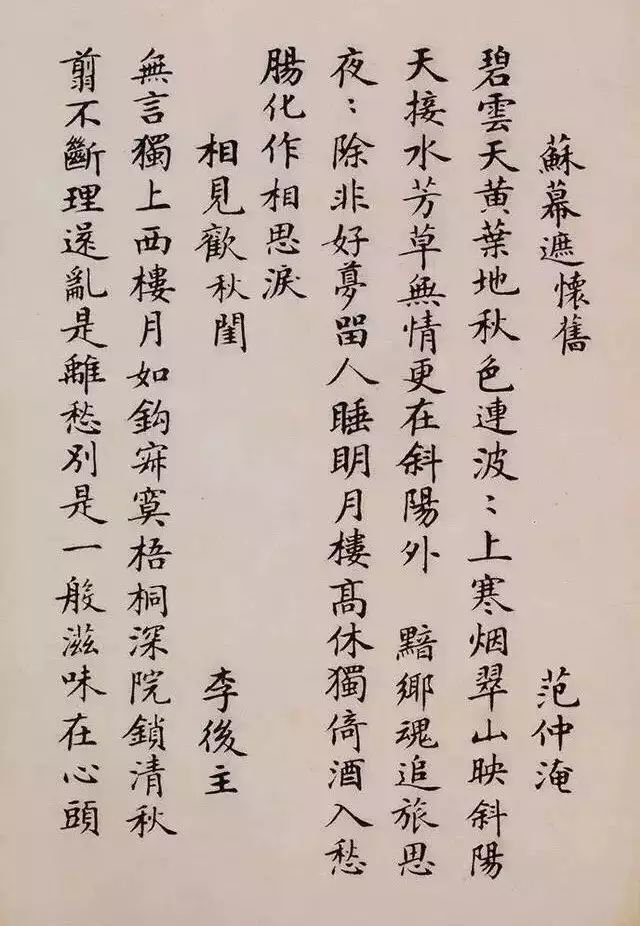 蘇幕遮懷舊 范仲淹
碧雲天黃葉地秋色連波︰上寒烟翠山映斜陽
天接水芳草無情更在斜陽外 黯鄉魂追旅思
夜︰除非好夢留人睡明月樓高休獨倚酒入愁
腸化作相思淚
相見歡秋閨 李後主
無言獨上西樓月如鈎寂寞梧桐深院鎖清秋
翦不斷理還亂是離愁別是一般滋味在心頭